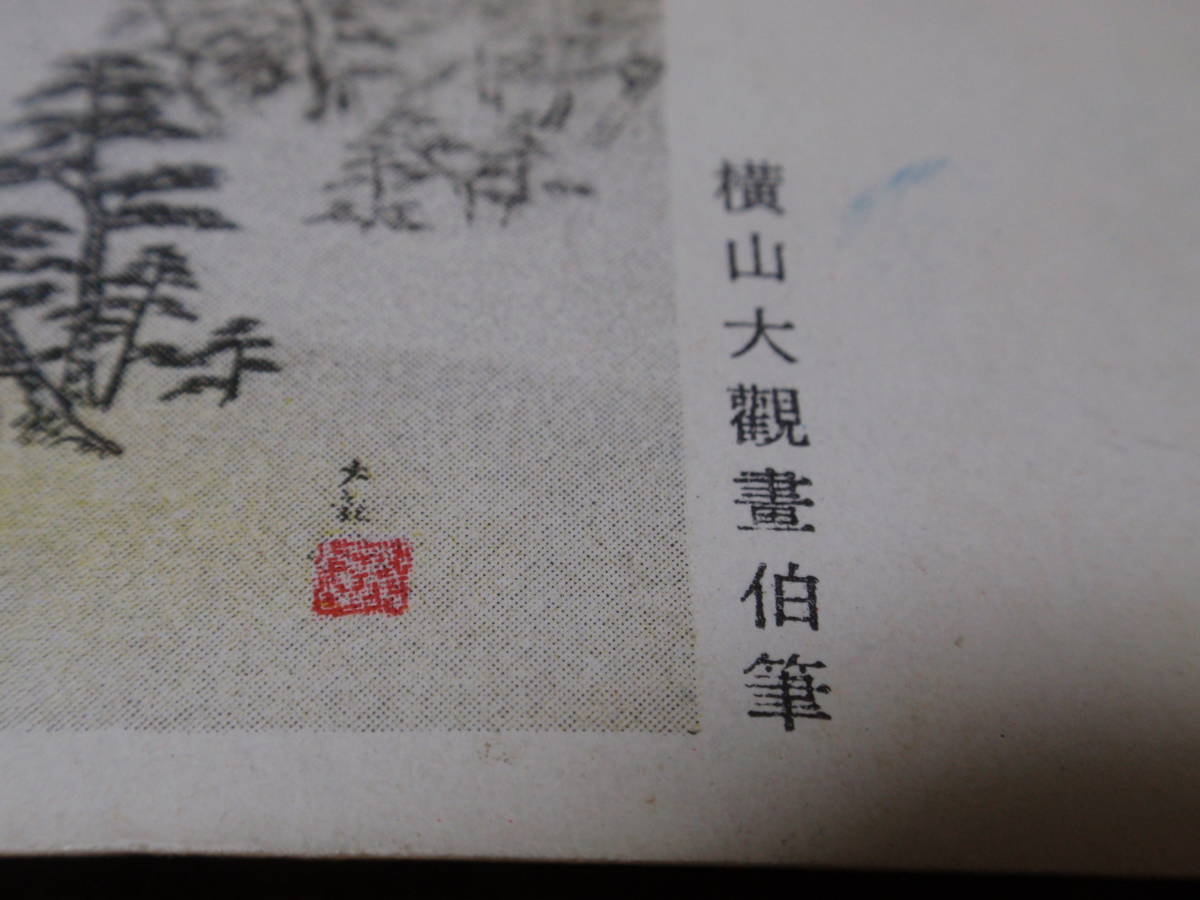 横山大觀畫伯筆
大観